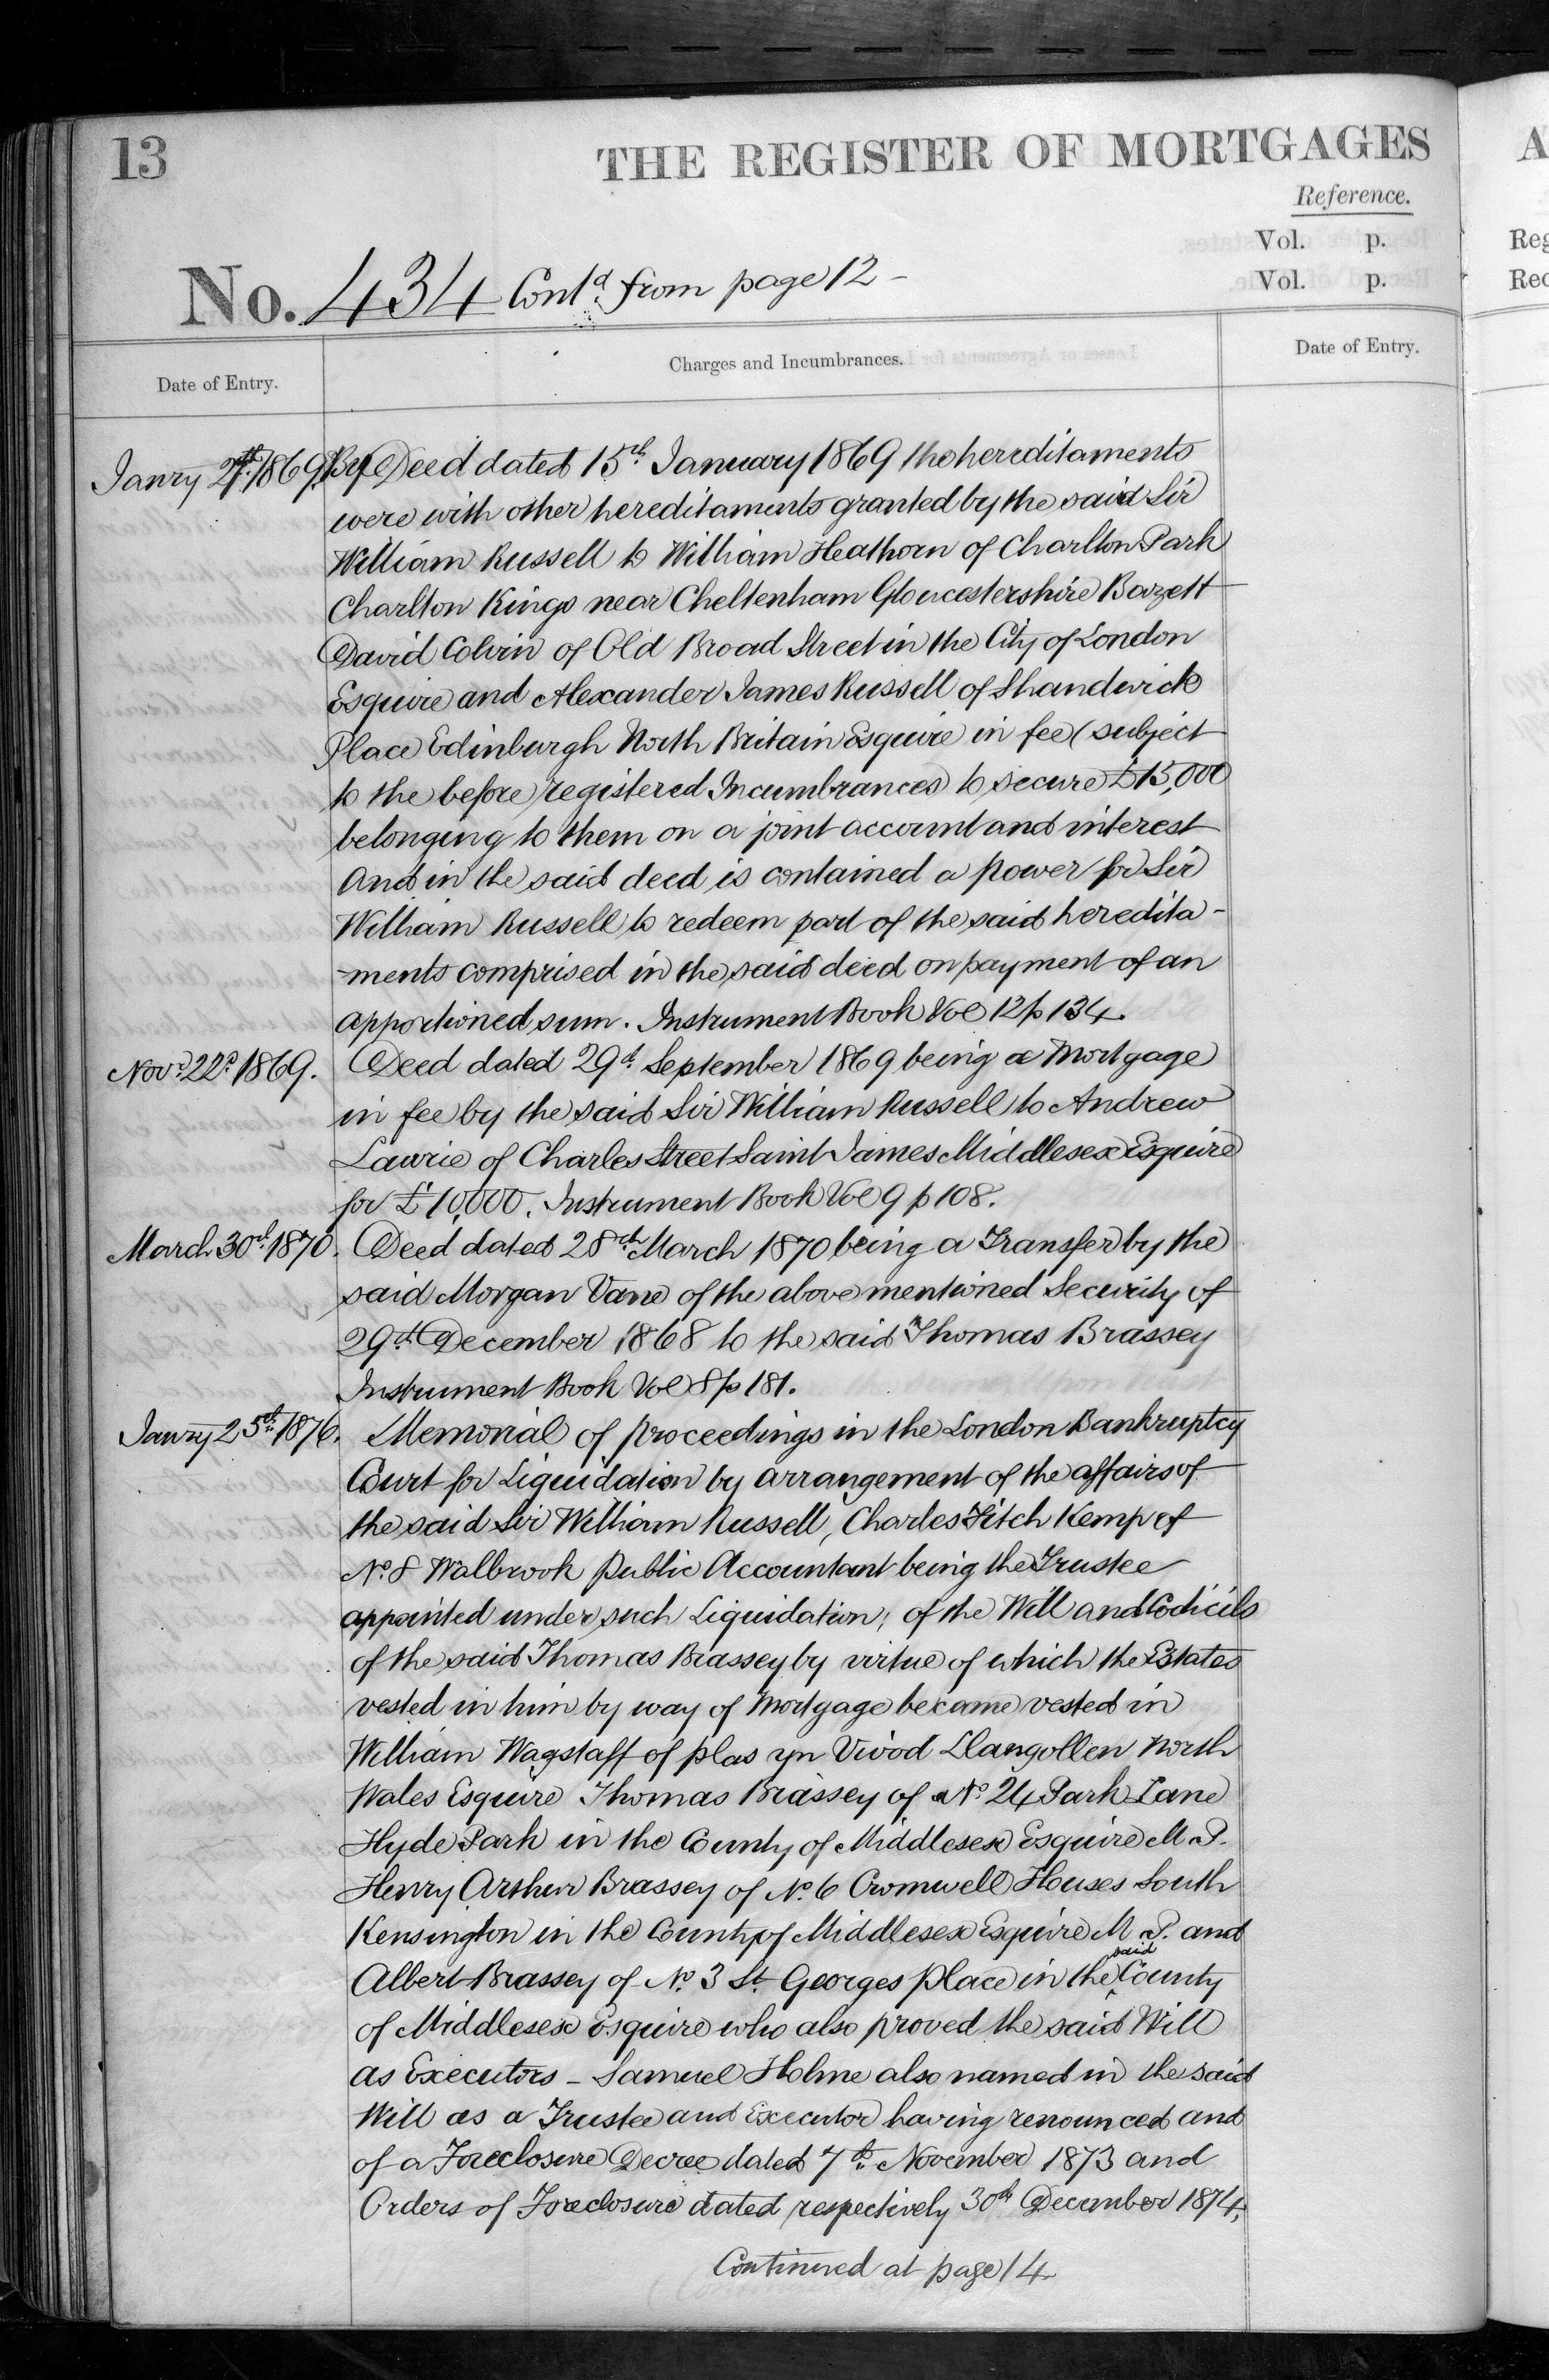 13
THE REGISTER OF MORTGAGES
Reference.
Vol. p.
Vol. p.
No. 434 Contd. from page 12 -
Date of Entry.
Charges and Incumbrances.
Date of Entry.
Janry 1869. By Deed dated 15th. January 1869 the hereditaments
were with other hereditaments granted by the said Sir
William Russell to William Heathorn of Charlton Park
Charlton Kings near Cheltenham Gloucestershire Bazett
David Colvin of Old Broad Street in the City of London
Esquire and Alexander James Russell of Shandwick
Place Edinburgh North Britain Esquire in fee (subject
to the before registered Incumbrances) to secure £15,000
belonging to them on a joint account and interest
And in the said deed is contained a power for Sir
William Russell to redeem part of the said heredita-
-ments comprised in the said deed on payment of an
apportioned sum. Instrument Book Vol 12 p 134.
Novr. 22d. 1869. Deed dated 29th. September 1869 being a Mortgage
in fee by the said Sir William Russell to Andrew
Lawrie of Charles Street Saint James Middlesex Esquire
for £10,000. Instrument Book Vol 9 p 108.
March 30th. 1870. Deed dated 28th. March 1870 being a Transfer by the
said Morgan Vane of the above mentioned Security of
29th. December 1868 to the said Thomas Brassey
Instrument Book Vol 8 p 181.
Janry 25th. 1876. Memorial of proceedings in the London Bankruptcy
Court for Liquidation by arrangement of the affairs of
the said Sir William Russell, Charles Fitch Kemp of
No. 8 Walbrook Public Accountant being the Trustee
appointed under such Liquidation; of the Will and Codicils
of the said Thomas Brassey by virtue of which the Estates
vested in him by way of Mortgage became vested in
William Wagstaff of plas yn Vivod Llangollen North
Wales Esquire Thomas Brassey of No. 24 Park Lane
Hyde Park in the County of Middlesex Esquire M.P.
Henry Arthur Brassey of No. 6 Cromwell Houses South
Kensington in the County of Middlesex Esquire M.P. and
Albert Brassey of No. 3 St. Georges place in the said County
of Middlesex Esquire who also proved the said Will
as Executors - Samuel Holme also named in the said
Will as a Trustee and Executor having renounced and
of a Foreclosure Decree dated 7th. November 1873 and
Orders of Foreclosure dated respectively 30th December 1874,
Continued at page 14
A
Reg
Rec